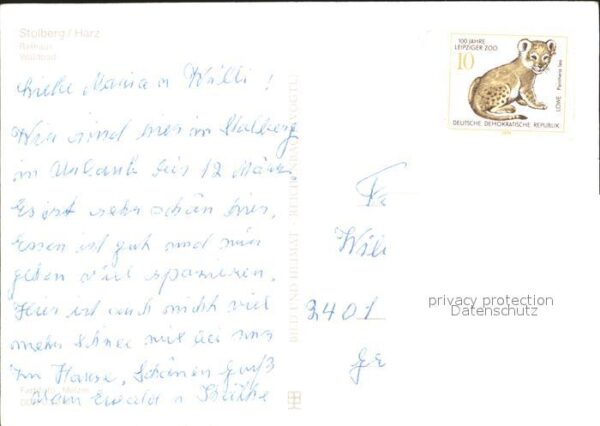 Stolberg / Harz
Rathaus
Waldbad
Liebe Maria u Willi !
Wir sind hier im Stolberg
im Urlaub bis 12 März.
Es ist sehr schön hier,
Essen ist gut und wir
gehen viel spazieren.
Hier ist auch nicht viel
mehr Schnee wie bei uns
im Hause, Schönen Gruß
Ewald u
BILD UND HEIMAT
REICHENBACH
100 JAHRE
LEIPZIGER ZOO
10
LÖWE Panthera leo
DEUTSCHE DEMOKRATISCHE REPUBLIK
Fa
Willi
3401
privacy protection
Datenschutz